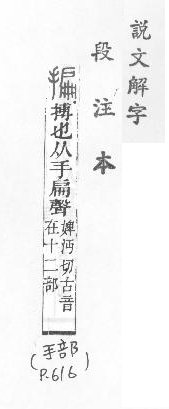 説文解字
段注本
揙搏也从手扁聲婢沔切古音
在十二部
(手部
P.616)